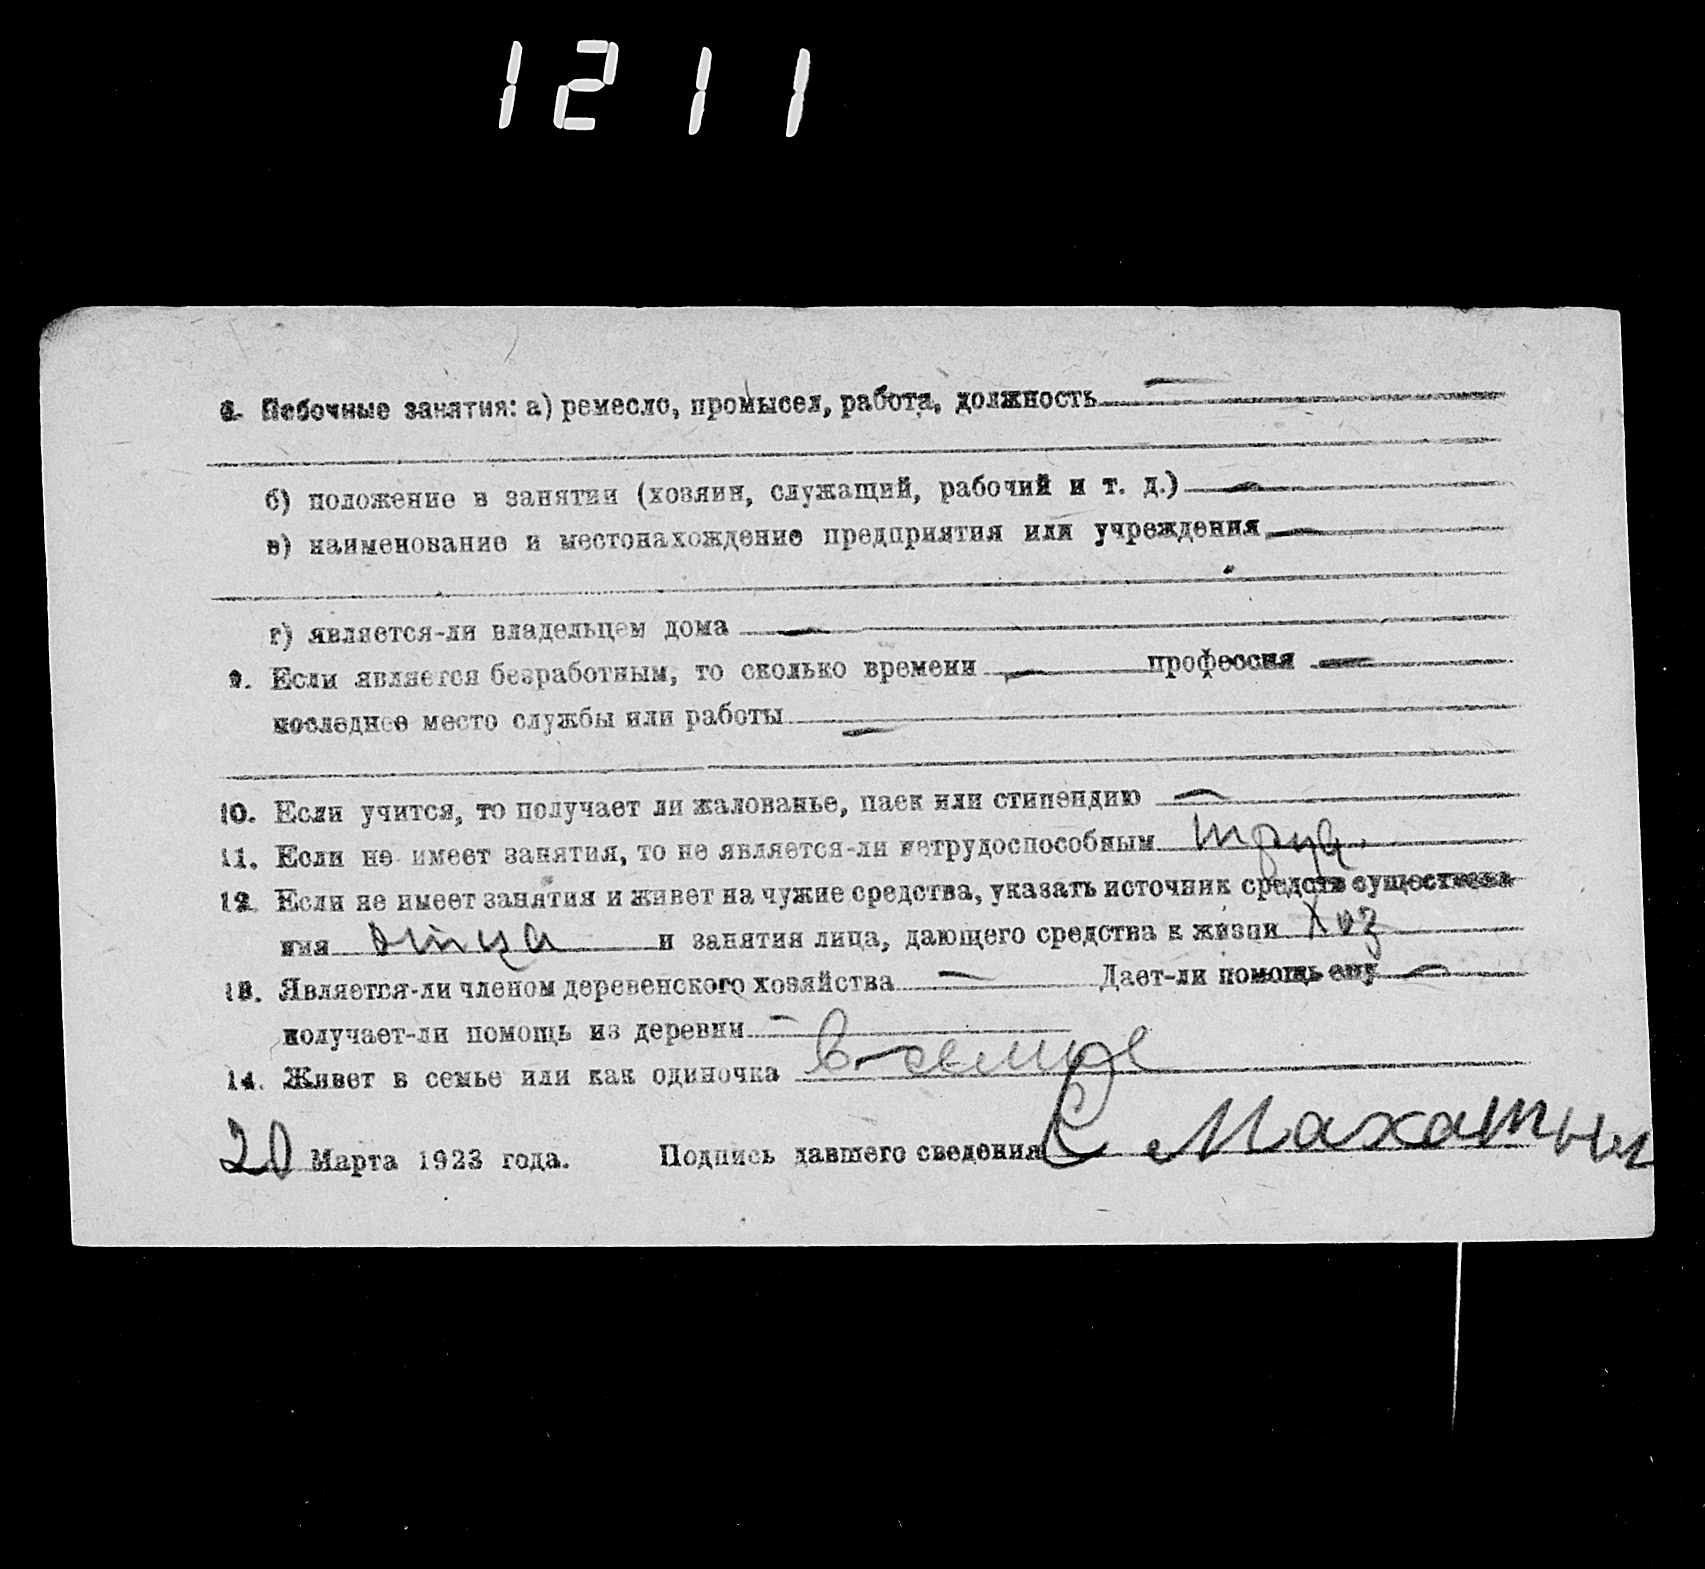 1211
8. Побочные занятия: а) ремесло, промысел, работа, должность
б) положение в занятии (хозяин, служащий, рабочий и т. д.)
в) наименование и местонахождение предприятия или учреждения
г) является-ли владельцем дома
9. Если является безработным, то сколько времени профессия
последнее место службы или работы
10. Если учится, то получает ли жалованье, паек или стипендию
11. Если не имеет занятия, то не является-ли нетрудоспособным труд.
12. Если не имеет занятия и живет на чужие средства, указать источник средств существова
ния отца и занятия лица, дающего средства к жизни Хоз
13. Является-ли членом деревенского хозяйства Дает-ли помощь ему
получает-ли помощь из деревни
14. Живет в семье или как одиночка в семье
20 Марта 1923 года. Подпись давшего сведения С